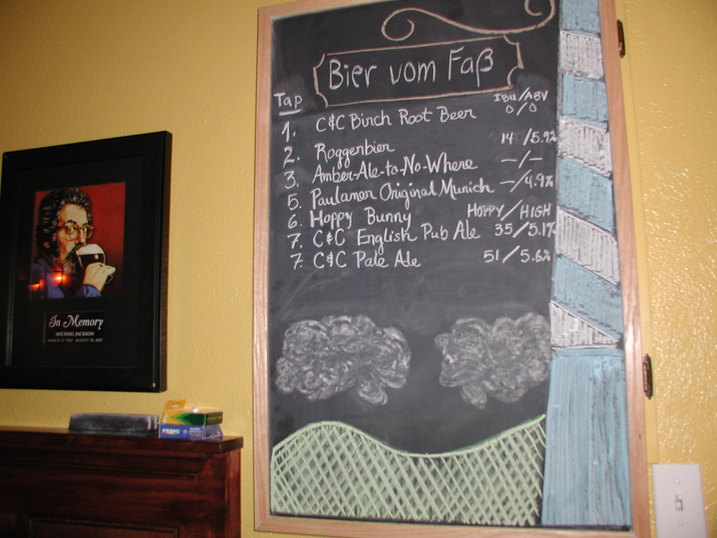 Bier vom Faß
Tap IBU/ABV
1. C&C Birch Root Beer 0/0
2. Roggenbier 14/5.9%
3. Amber-Ale-to-No-Where -/-
5. Paulaner Original Munich -/4.9%
6. Hoppy Bunny HOPPY/HIGH
7. C&C English Pub Ale 35/5.1%
7. C&C Pale Ale 51/5.6%
In Memory
MICHAEL JACKSON
MARCH 27 1942 - AUGUST 30, 2007
PRANG